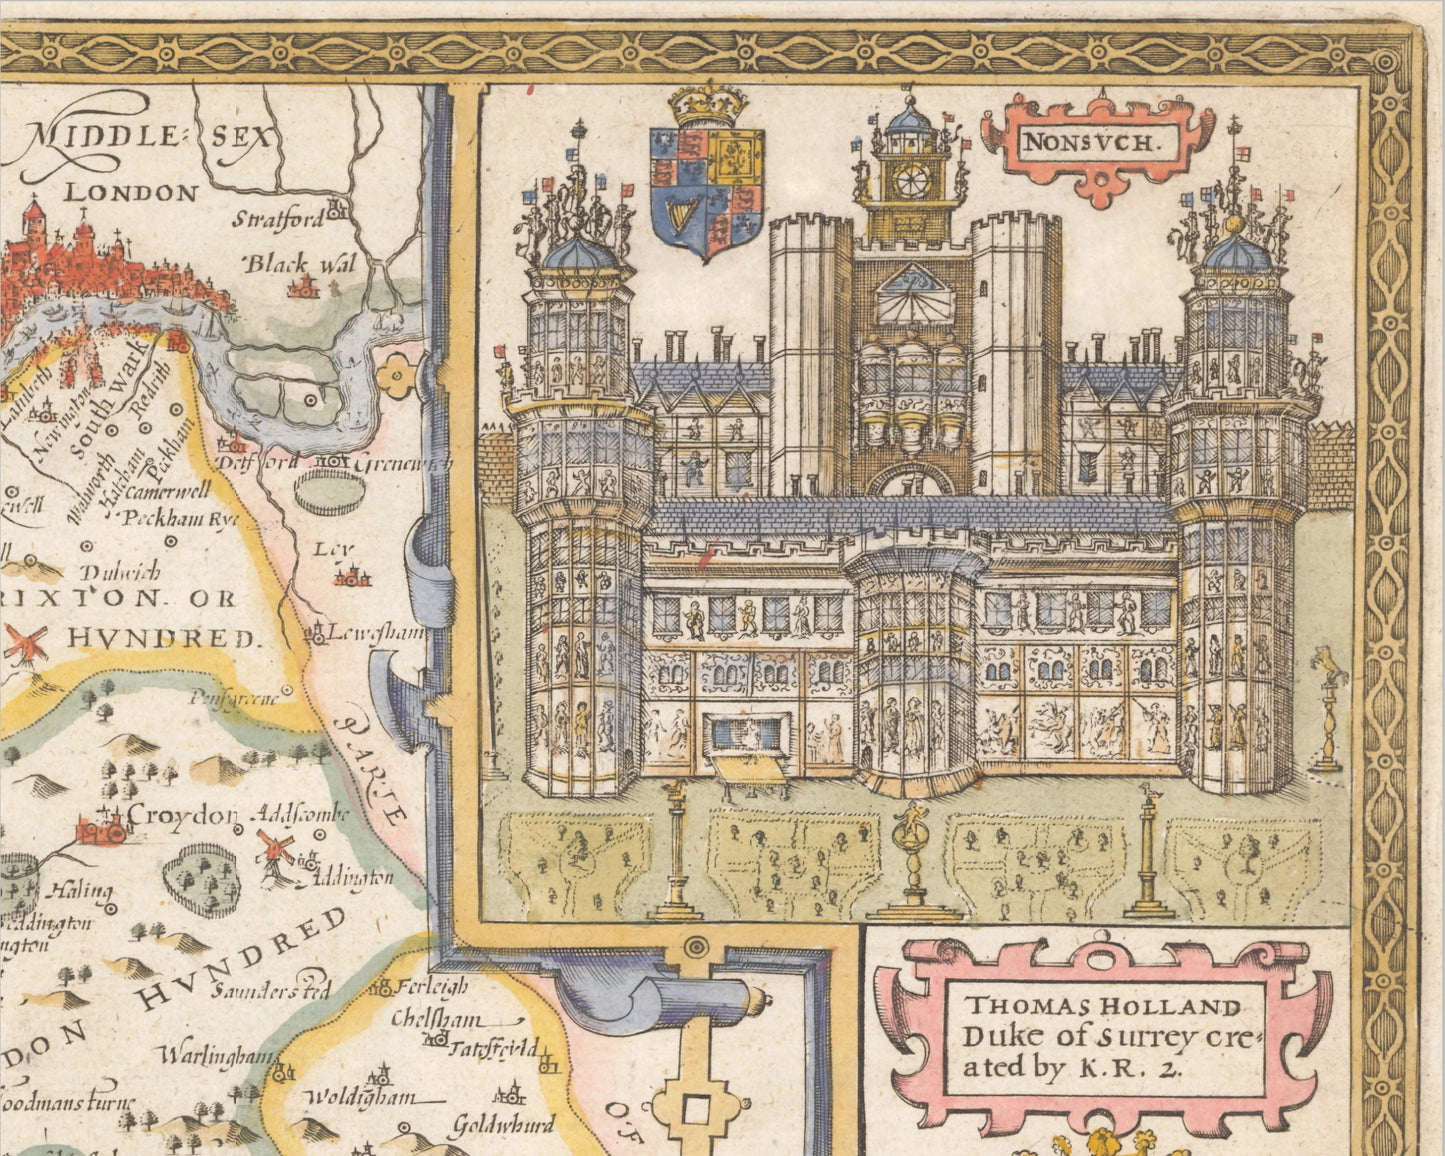 MIDDLE: SEX
LONDON
Stratford
Black wal
NONSVCH.
Lambeth
Newington
South wark
Redrith
Detford
Grenewich
Walworth
Hatcham
Peckham
Camerwell
Peckham Rye
Ley
Dulwich
RIXTON. OR
HVNDRED.
Lewesham
Pensgreene
PARTE
Croydon
Addscombe
Addington
Haling
eddington
ngton
DON HVNDRED
Saundersted
Ferleigh
Chelsham
Tatesfeyld
Warlingham
Woldigham
oodmansturne
Goldwhurd
OF
THOMAS HOLLAND
Duke of Surrey cre:
ated by K. R. 2.